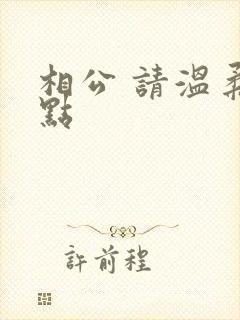 相公 請溫柔
點
許前程